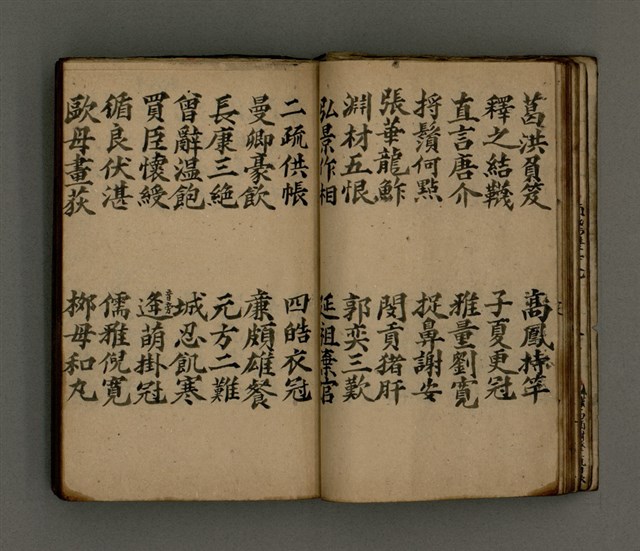 葛洪負笈 高鳳持竿
釋之結韈 子夏更冠
直言唐介 雅量劉寬
捋鬚何點 捉鼻謝安
張華龍鮓 閔貢猪肝
淵材五恨 郭奕三歎
弘景作相 延祖棄官
二疏供帳 四皓衣冠
曼卿豪飲 廉頗雄餐
長康三絶 元方二難
曾辭温飽 城忍飢寒
買臣懷綬 逄萌掛冠
循良伏湛 儒雅倪寛
歐母畫荻 柳母和丸